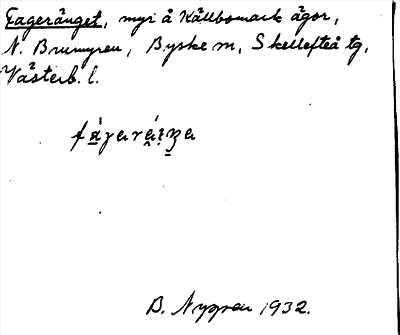 Fageränget, myr å Källbomark ägor,
N. Brumyren, Byske sn, Skellefteå tg,
Västerb. l.
B. Nygren 1932.